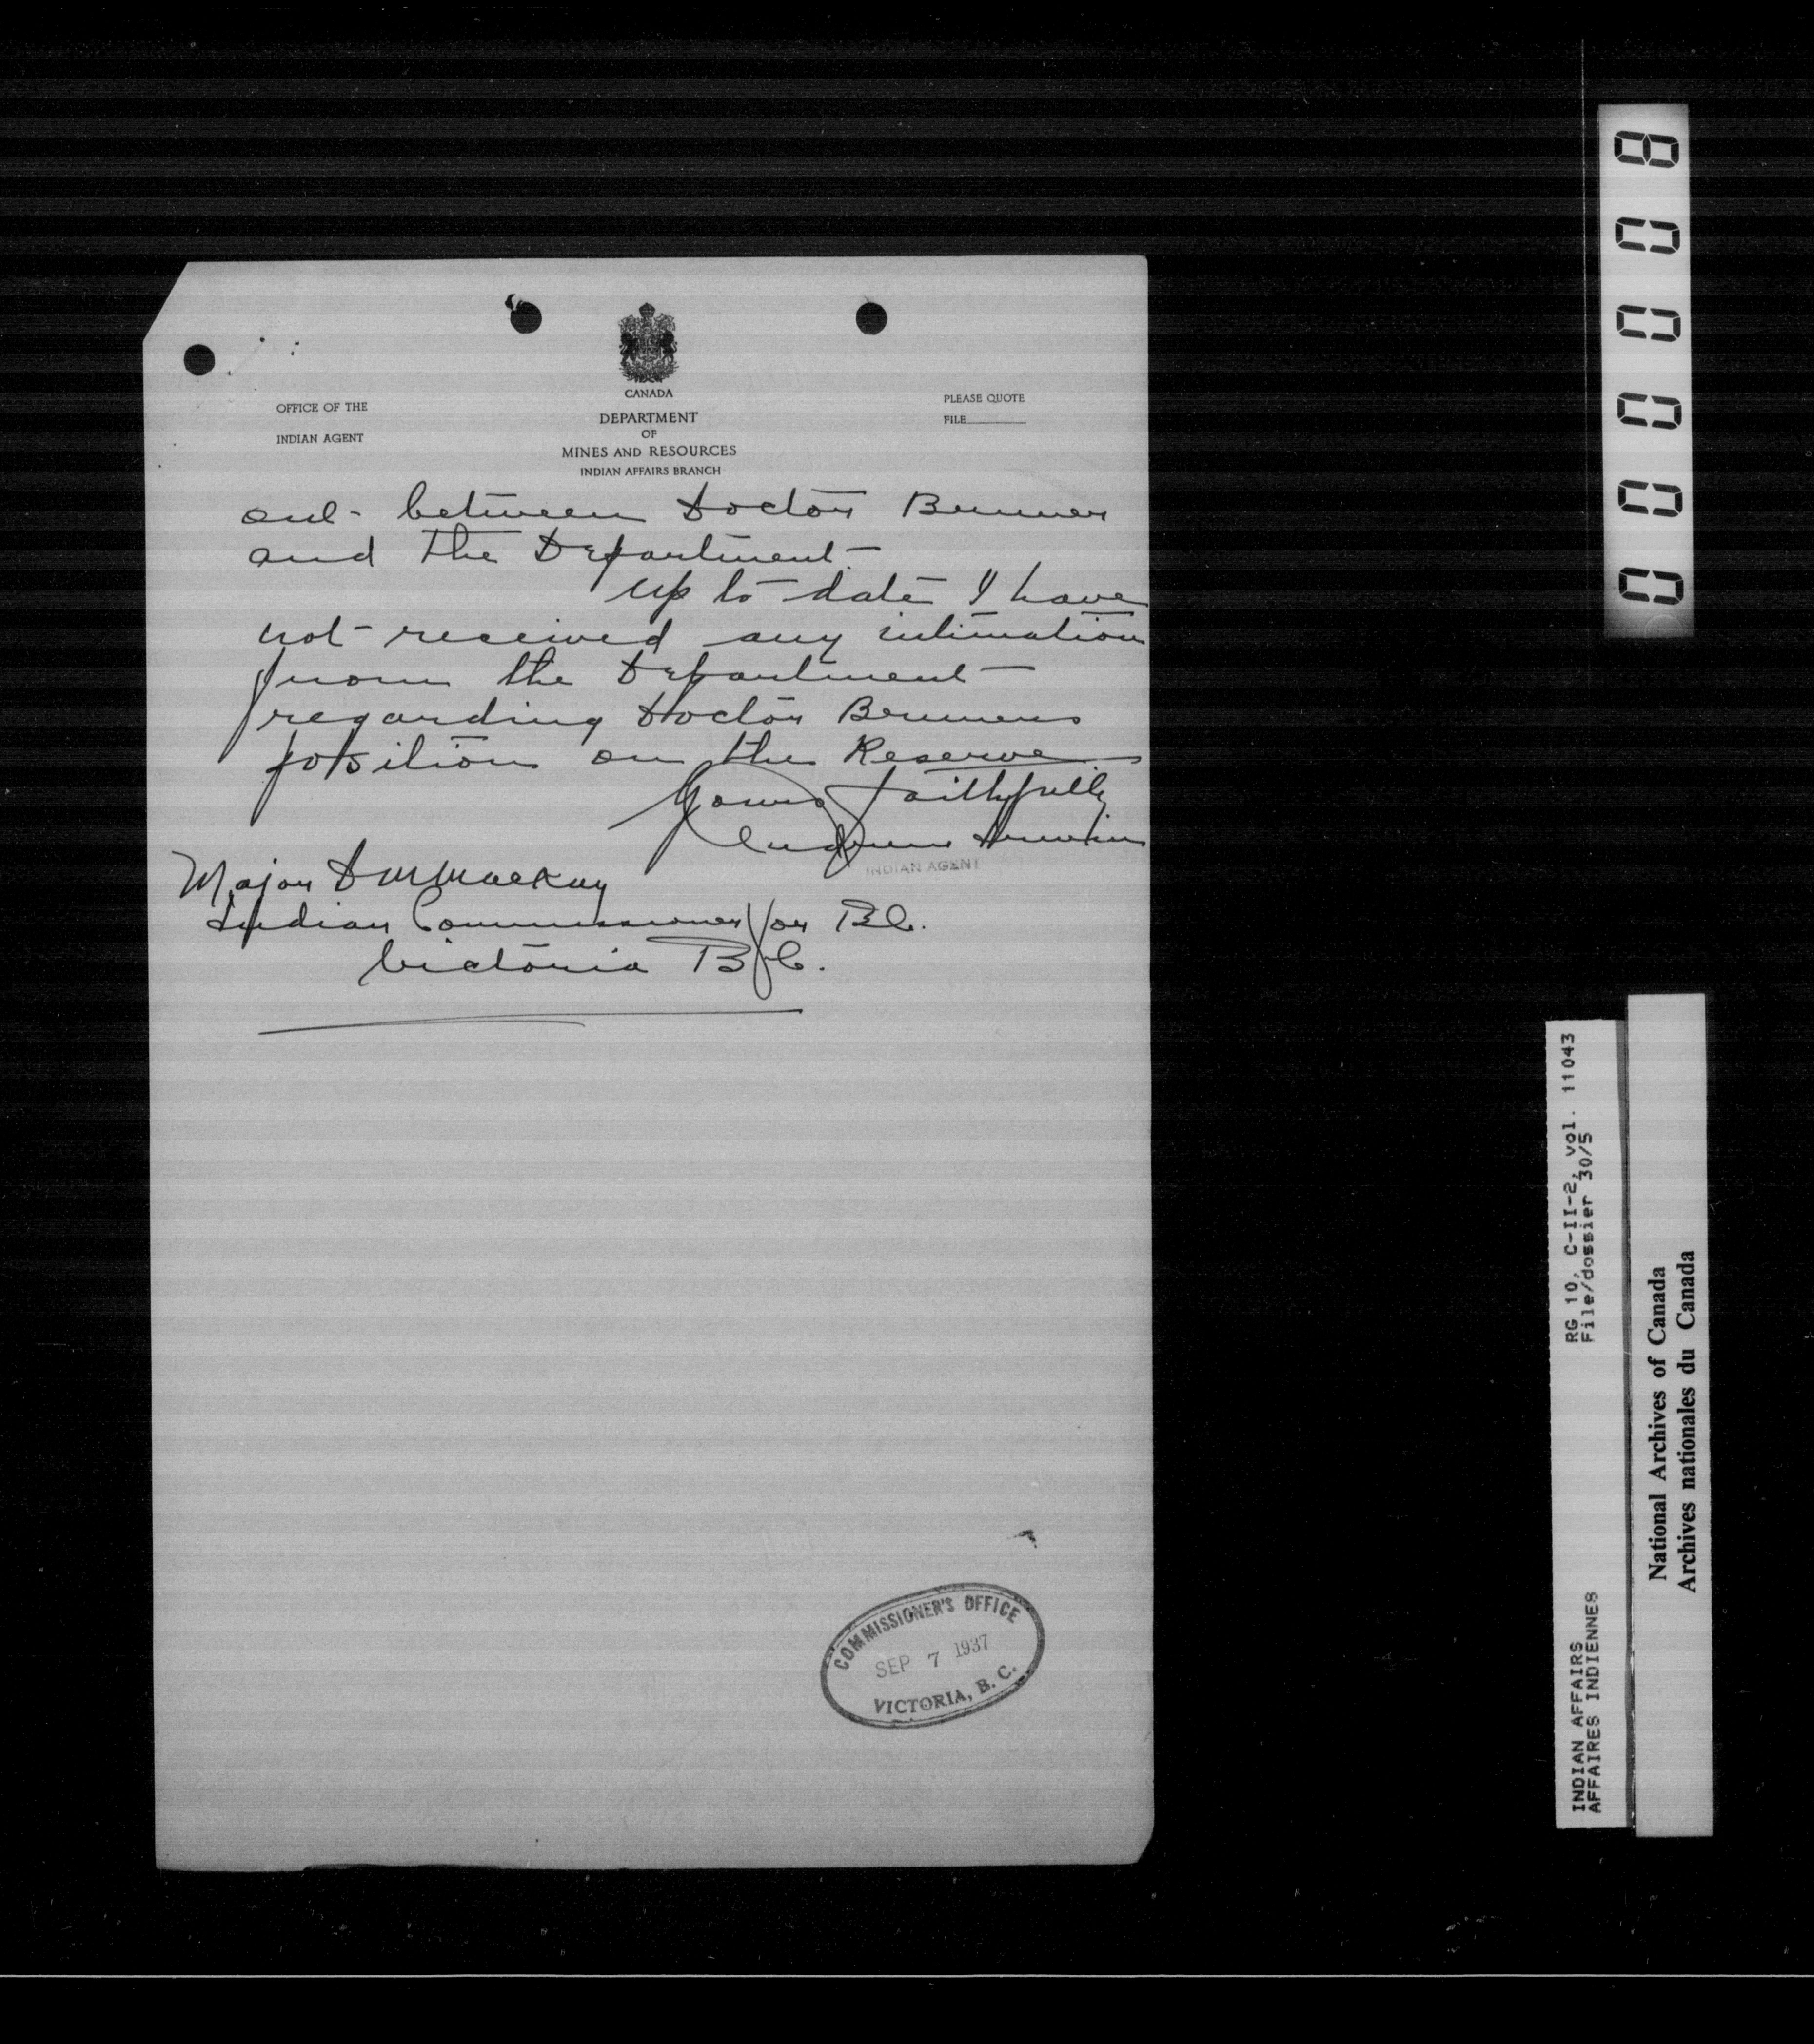 CANADA
OFFICE OF THE
INDIAN AGENT
DEPARTMENT
OF
MINES AND RESOURCES
INDIAN AFFAIRS BRANCH
PLEASE QUOTE
FILE
out between Doctor
and the Department
up to date I have
not received any intimation
from the Department
regarding Doctor
position on the Reserve
Yours faithfully
Andrew Irwin
INDIAN AGENT
Major D M MacKay
Indian Commissioner for BC.
Victoria B C.
COMMISSIONER'S OFFICE
SEP 7 1937
VICTORIA, B. C.
000008
RG 10, C-II-2, vol. 11043
File/dossier 30/5
INDIAN AFFAIRS
AFFAIRES INDIENNES
National Archives of Canada
Archives nationales du Canada